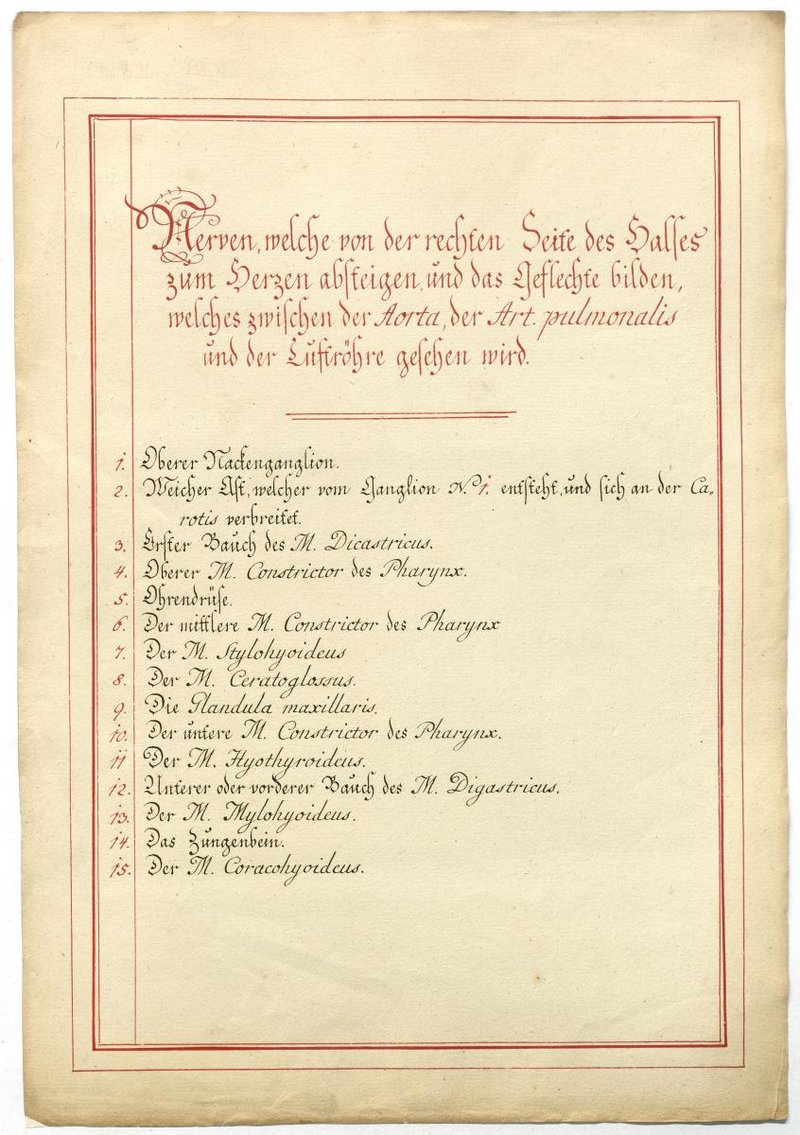 Nerven, welche von der rechten Seite des Halses
zum Herzen absteigen, und das Geflechte bilden,
welches zwischen der Aorta, der Art. pulmonalis
und der Luftröhre gesehen wird.
1. Oberer Nackenganglion.
2. Weicher Ast, welcher vom Ganglion N.º 1. entsteht, und sich an der Ca,
rotis verbreitet.
3. Erster Bauch des M. Dicastricus.
4. Oberer M. Constrictor des Pharynx.
5. Ohrendrüse.
6. Der mittlere M. Constrictor des Pharynx
7. Der M. Stylohyoideus
8. Der M. Ceratoglossus.
9. Die Glandula maxillaris.
10. Der untere M. Constrictor des Pharynx.
11 Der M. Hyothyroideus.
12. Unterer oder vorderer Bauch des M. Digastricus.
13. Der M. Mylohyoideus.
14. Das Zungenbein.
15. Der M. Coracohyoideus.